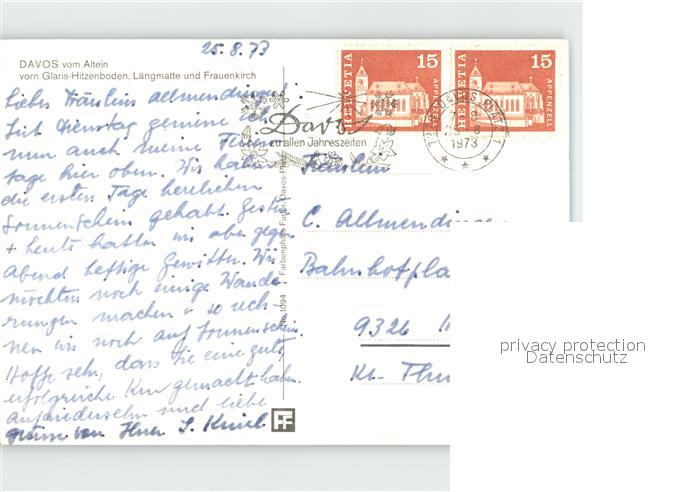 25.8.73
DAVOS vom Altein
vorn Glaris-Hitzenboden, Längmatte und Frauenkirch
Liebes Fräulein Allmendinger!
Seit Dienstag geniesse ich
nun auch meine Ferien-
tage hier oben. Wir haben
die ersten Tage herrlichen
Sonnenschein gehabt. Gestern
+ heute hatten wir aber gegen
Abend heftige Gewitter. Wir
möchten noch einige Wande-
rungen machen + so rech-
nen wir noch auf Sonnenschein.
Hoffe sehr, dass Sie eine gute
erfolgreiche Kur gemacht haben.
Aufwiedersehn und liebe
Grüsse von Ihrer
HELVETIA 15 APPENZELL
HELVETIA 15 APPENZELL
Davos
zu allen Jahreszeiten
1973
No. 1094 Farbenphoto Furter, Davos-Platz
Fräulein
C. Allmendinger
Bahnhofpla
9326
Kt. Thu
FF
privacy protection
Datenschutz